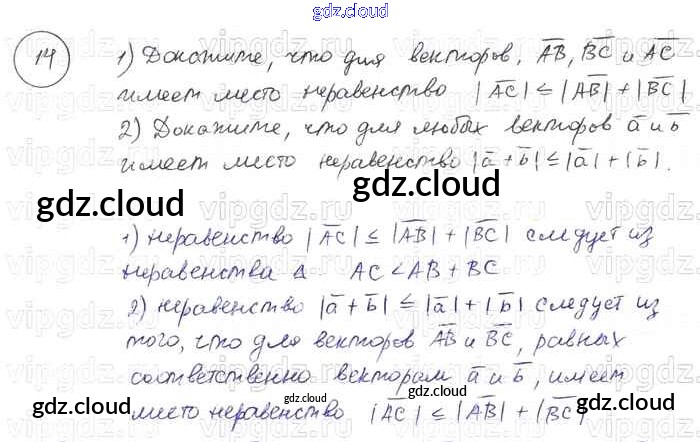 gdz.cloud
14
1) Докажите, что для векторов, A̅B̅, B̅C̅ и A̅C̅
имеет место неравенство |A̅C̅| ≤ |A̅B̅| + |B̅C̅|
2) Докажите, что для любых векторов a̅ и b̅
имеет место неравенство |a̅ + b̅| ≤ |a̅| + |b̅|.
gdz.cloud gdz.cloud
1) неравенство |A̅C̅| ≤ |A̅B̅| + |B̅C̅| следует из
неравенства Δ AC < AB + BC
2) неравенство |a̅ + b̅| ≤ |a̅| + |b̅| следует из
того, что для векторов A̅B̅ и B̅C̅, равных
соответственно векторам a̅ и b̅, имеет
gdz.cloud gdz.cloud gdz.cloud
место неравенство |A̅C̅| ≤ |A̅B̅| + |B̅C̅|